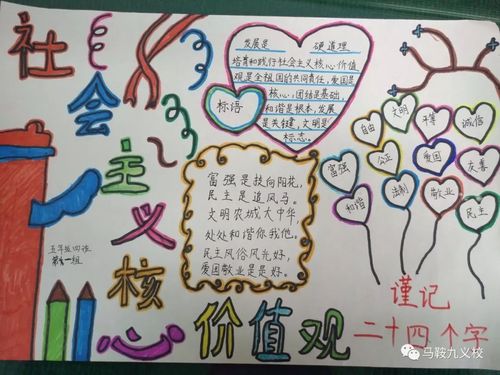 社会主义核心价值观
发展是 硬道理
培育和践行社会主义核心价值
观是全祖国的共同责任，爱国是
核心，团结是基础，
和谐是根本，发展
是关键，文明是
标志。
标语
富强是技向阳花，
民主是道风马。
文明农城大中华，
处处和谐你我他，
民主风俗风光好，
爱国敬业是是好。
自由
文明
平等
诚信
富强
公正
爱国
友善
和谐
法制
敬业
民主
五年级四班
第一组
谨记
二十四个字
马鞍九义校